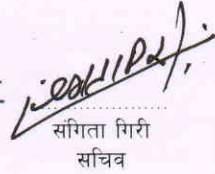 संगिता गिरी
सचिव